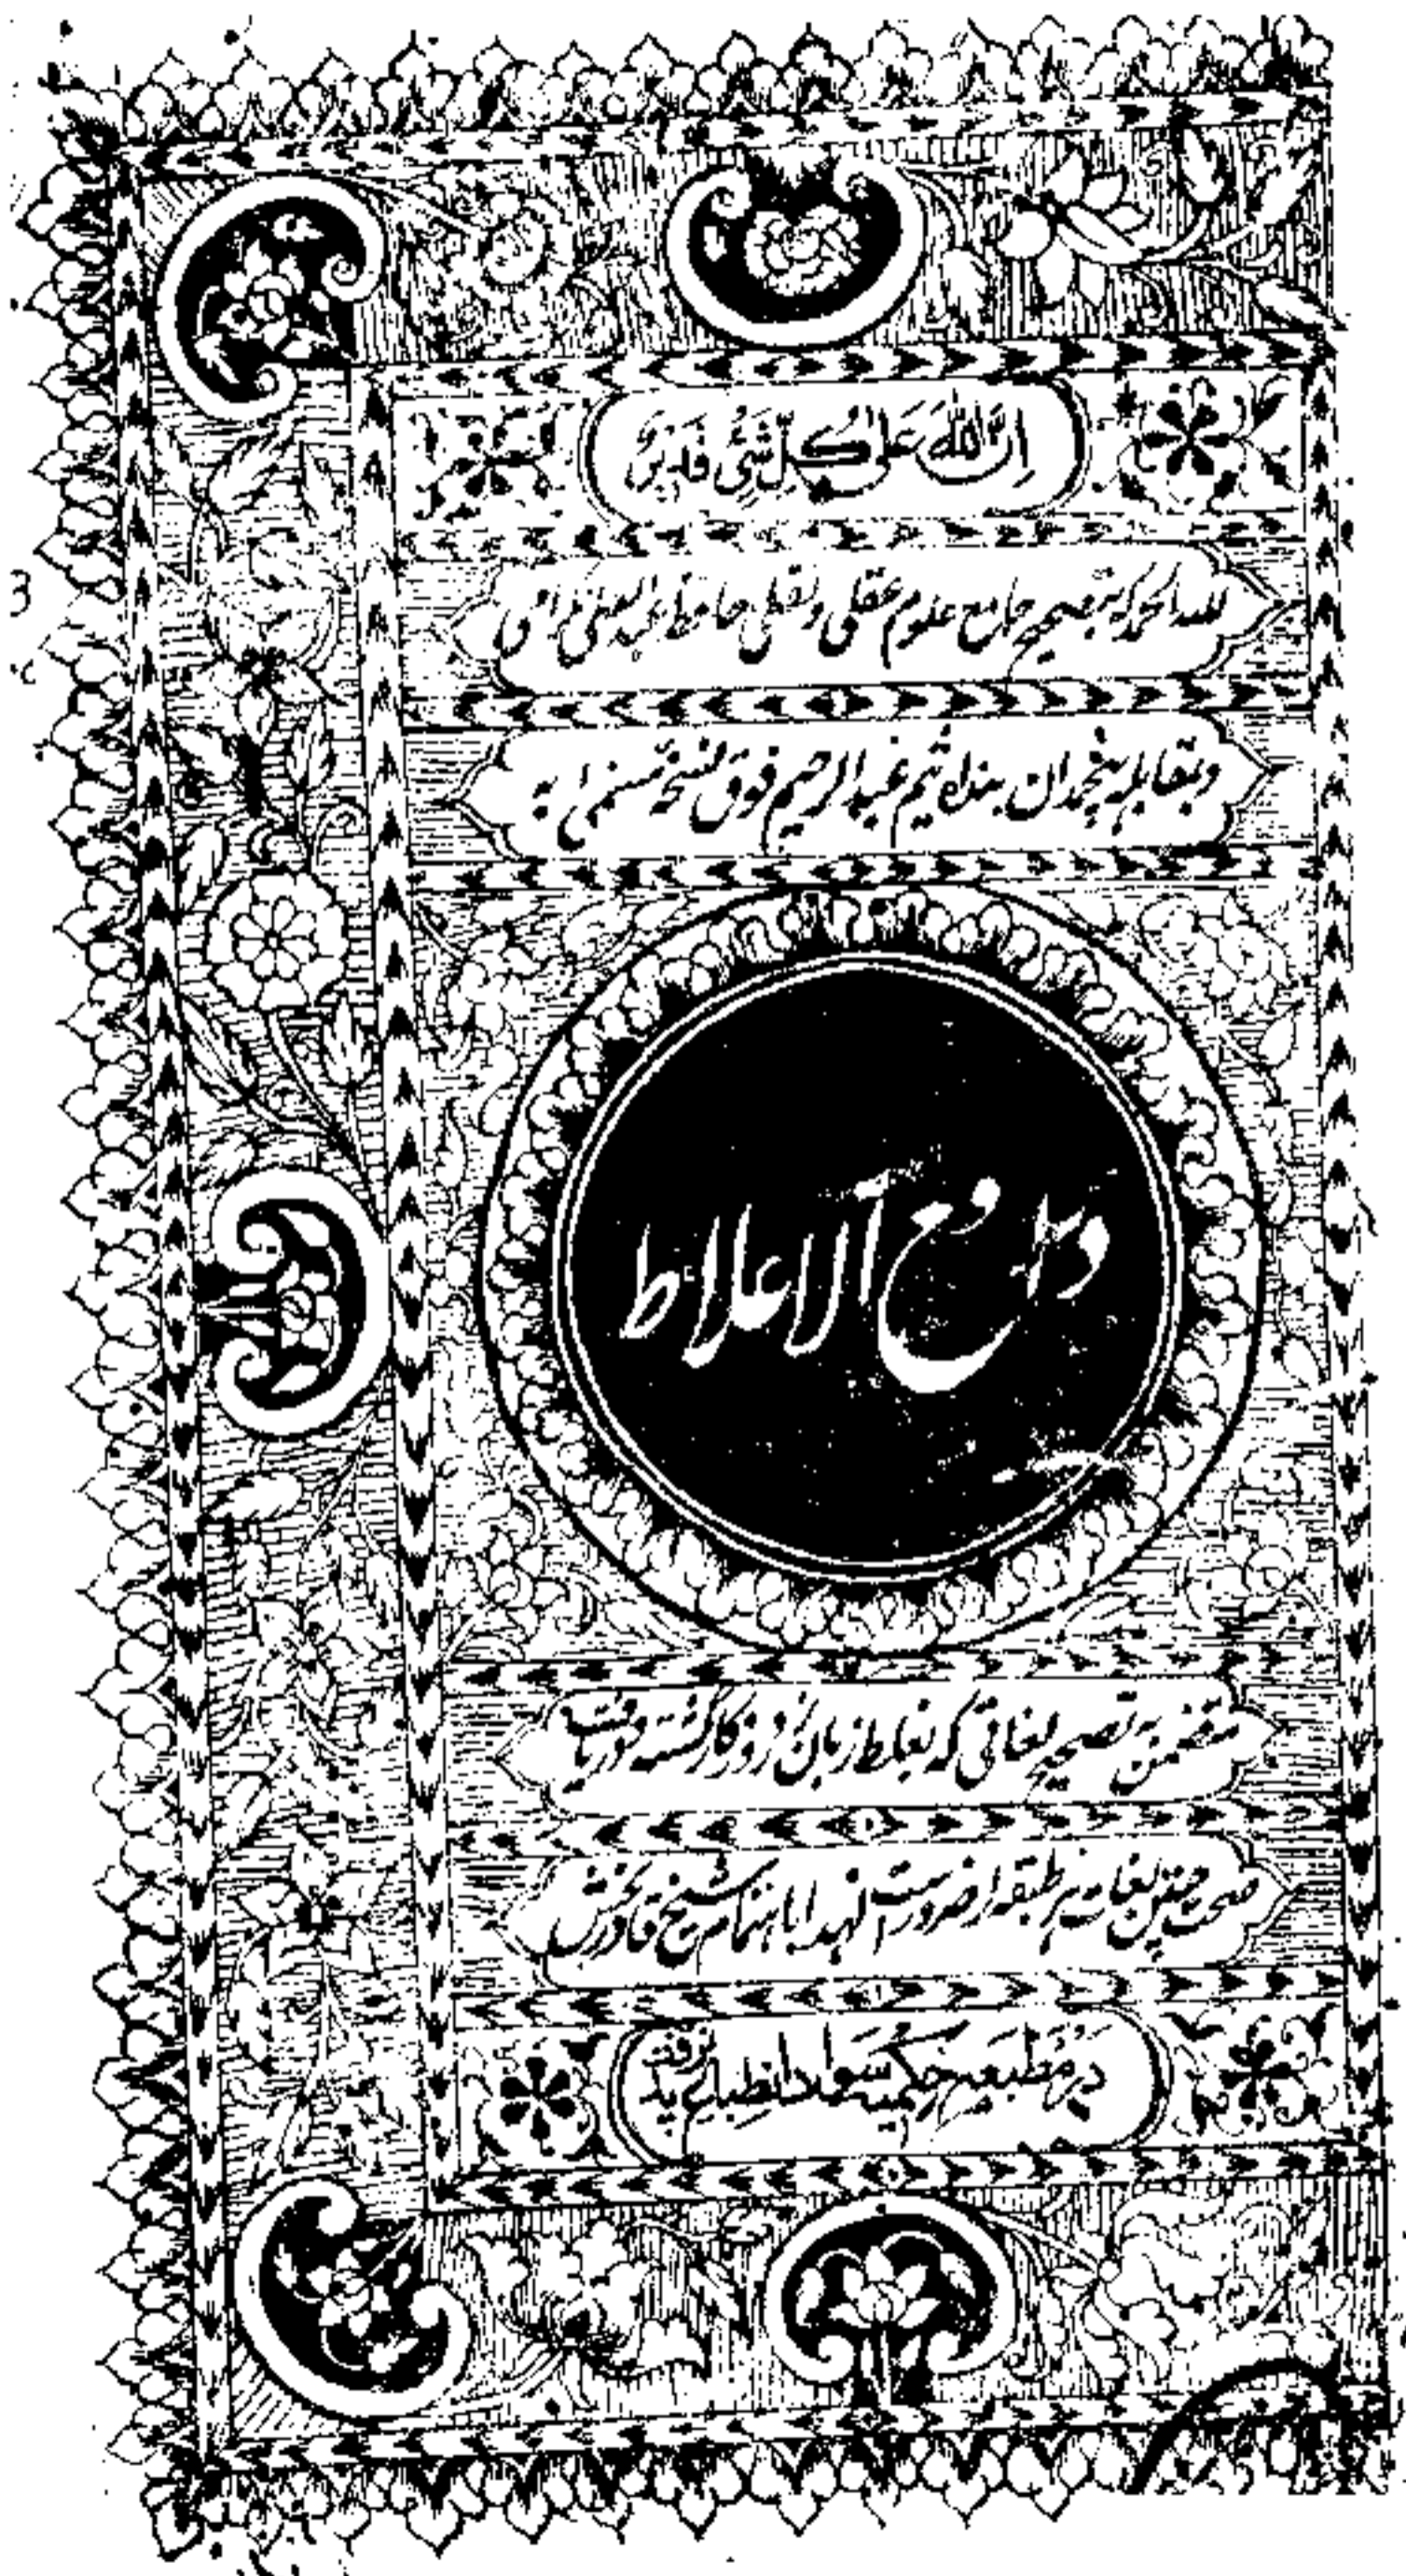 اِنَّ اللهَ عَلٰی كُلِّ شَیْءٍ قَدِیْرٌ
لله الحمد که بتصحیح جامع علوم عقلی و نقلی حافظ
و بمقابله هیچمدان بنده اثیم عبدالرحیم فوق نسخه مسمی به
دافع الاغلاط
متضمن به تصحیح لغاتی که بغلط زبان زد روزگار گشته و دریافت
صحت چنین لغات بر هر طبقه از ضروریات است لهذا باهتمام شیخ قادر بخش
در مطبعه انطباع پذیرفت